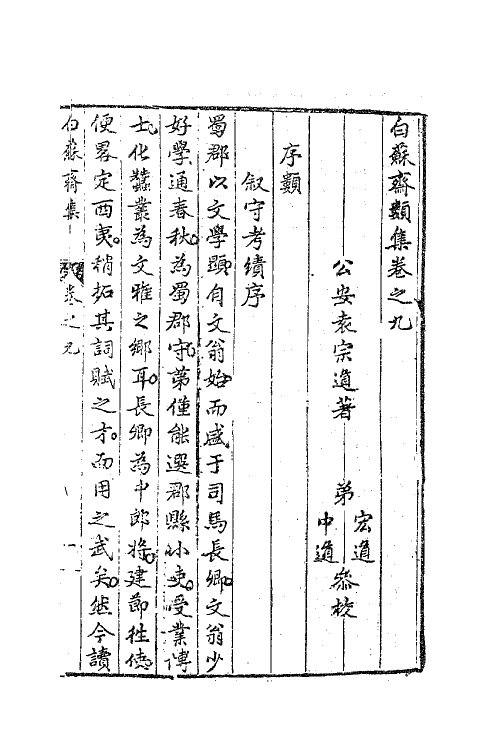 白蘇齋類集卷之九
公安袁宗道著 弟 宏道 中道 叅校
序類
叙守考績序
蜀郡以文學顯自文翁始而盛于司馬長卿文翁少
好學通春秋為蜀郡守第僅能選郡縣小吏受業博
士化蠶叢為文雅之鄉耳長卿為中郎將建節往使
便畧定西夷稍拓其詞賦之才而用之武矣然今讀
白蘇齋集 卷之九 一